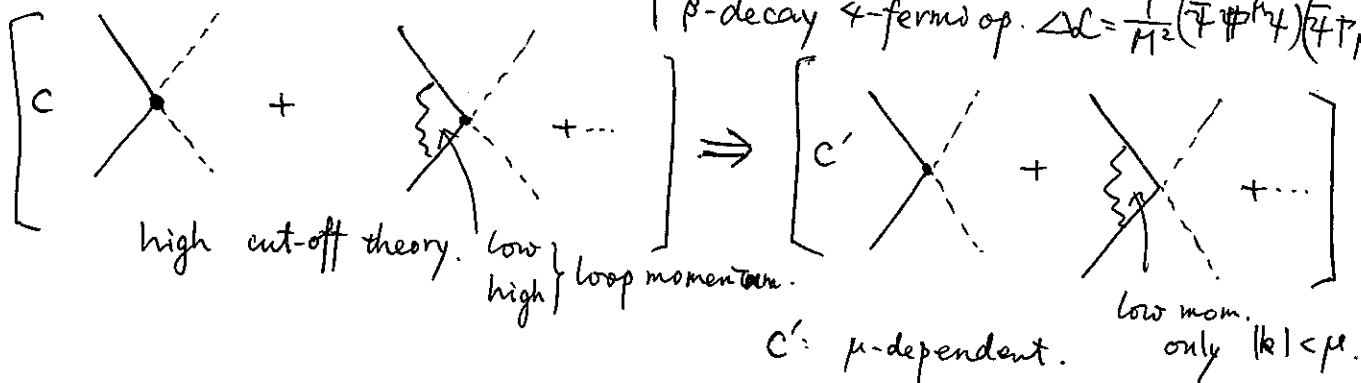 β-decay 4-fermi op. Δℒ = 1/M² (Ψ̄ Γ^μ Ψ)(Ψ̄ Γ_μ
C + +⋯ ⇒ C′ + +⋯
high cut-off theory. low high } loop momentum.
low mom.
C′: μ-dependent. only |k| < μ.